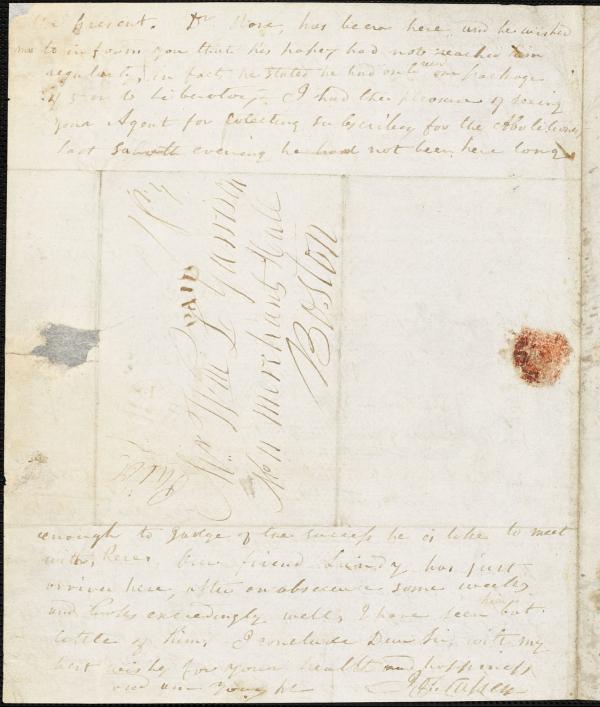 the present. Dr Hose, has been here and he wished
to inform you that his paper had not reached him
regularly, in fact he stated he had only one package
of 5 or 6 Liberators,- I had the pleasure of seeing
your Agent for Colecting subscribers for the Abolitionist
last evening he had not been here long
PAID
Mr Wm L Garrison
No 11 Merchants Hall
Boston
enough to Judge of the success he is like to meet
with, here, Our friend Lundy has just
arriven here, after an abscence some weeks
and looks exceedingly well, I have seen but
little of him, I conclude Dear Sir, with my
best wishes for your health and happiness
and am yours &c